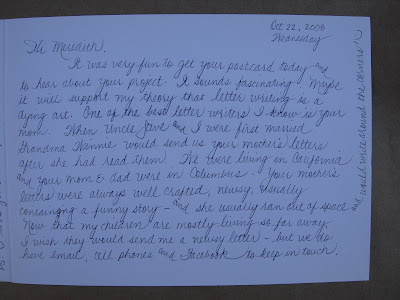 Oct 22, 2008
Wednesday
Hi Meredith,
It was very fun to get your postcard today and
to hear about your project. It sounds fascinating. Maybe
it will support my theory that letter writing is a
dying art. One of the best letter writers I know is your
mom. When Uncle Steve and I were first married
Grandma Nannie would send us your mother's letters
after she had read them. We were living in California
and your mom & dad were in Columbus. Your mother's
letters were always well crafted, newsy, usually
containing a funny story - and she usually ran out of space
and would write around the corners!
Now that my children are mostly living so far away,
I wish they would send me a newsy letter - but we do
have email, cell phones and Facebook to keep in touch.